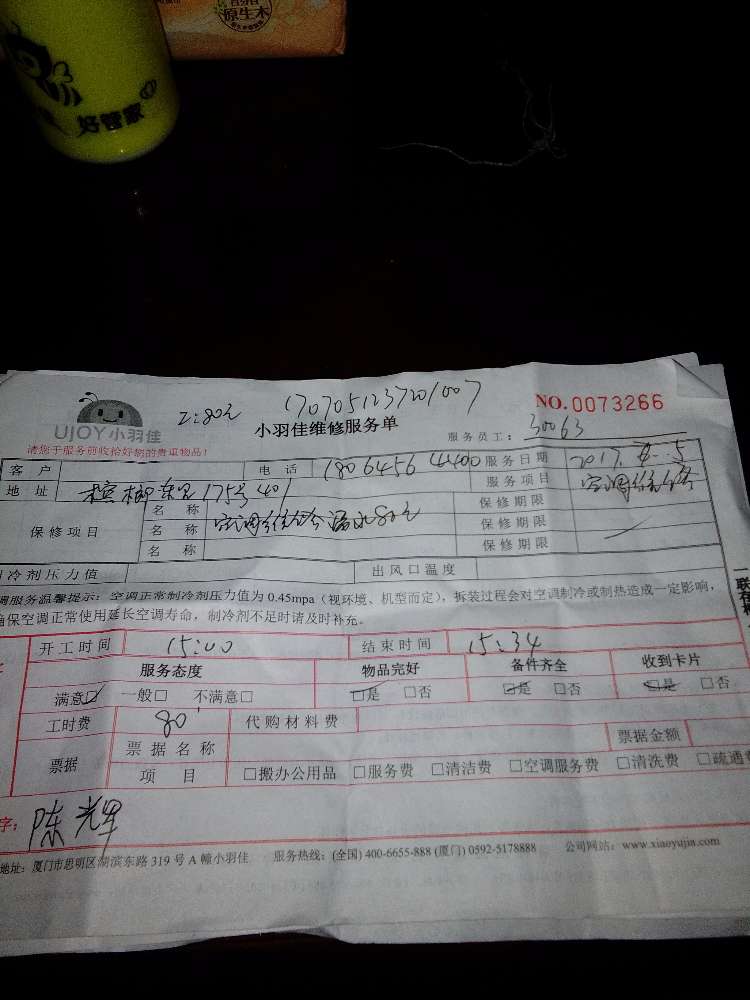 原生木
好管家
工:80元 170705123701007 NO.0073266
UJOY小羽佳 小羽佳维修服务单 服务员工: 30063
请您于服务前收拾好您的贵重物品!
客户 电话 18064564400 服务日期 2017. 5
地址 槟榔东里175号401 服务项目 空调
保修项目 名称 空调 漏水80元 保修期限
名称 保修期限
名称 保修期限
冷剂压力值 出风口温度
调服务温馨提示: 空调正常制冷剂压力值为 0.45mpa (视环境、机型而定), 拆装过程会对空调制冷或制热造成一定影响,
确保空调正常使用延长空调寿命, 制冷剂不足时请及时补充。
开工时间 15:00 结束时间 15:34
服务态度 物品完好 备件齐全 收到卡片
满意☑ 一般□ 不满意□ ☑是 □否 ☑是 □否 ☑是 □否
工时费 80 代购材料费
票据 票据名称 票据金额
项目 □搬办公用品 □服务费 □清洁费 □空调服务费 □清洗费 □疏通
字: 陈光军
地址: 厦门市思明区湖滨东路 319 号 A 幢小羽佳 服务热线: (全国) 400-6655-888 (厦门) 0592-5178888 公司网站: www.xiaoyujia.com